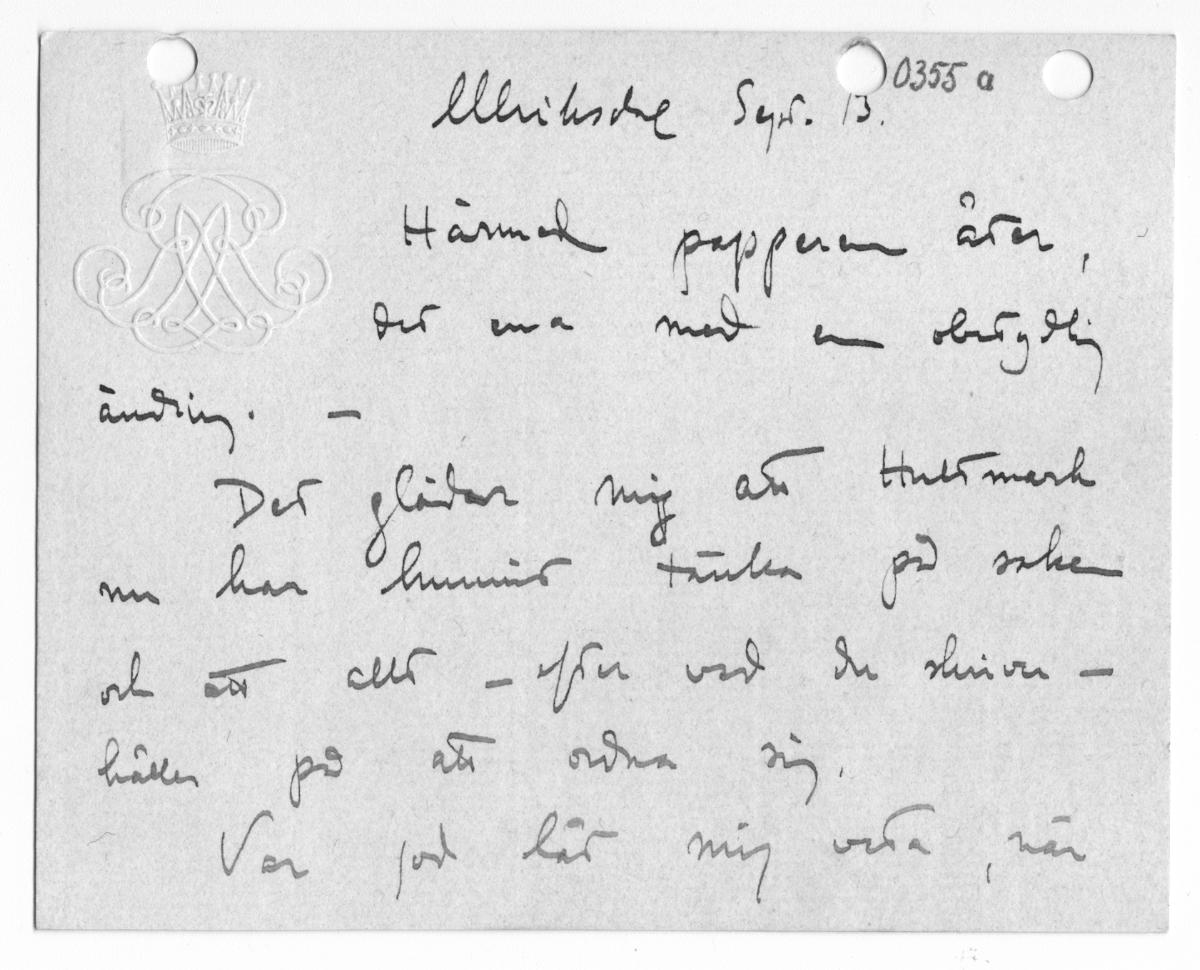 0355 a
Ulriksdal Sept. 13.
Härmed papperen åter,
det ena med en obetydlig
ändring. —
Det gläder mig att Hultmark
nu har hunnit tänka på saken
och att allt – efter vad du skriver –
håller på att ordna sig.
Var god låt mig veta, när